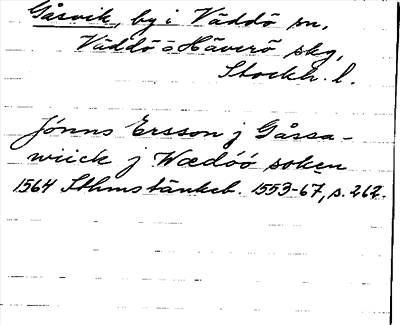 Gåsvik, by i Väddö sn,
Väddö o Häverö skg,
Stockh. l.
Jönns Ersson j Gåssa-
wiick j Wædöö soken
1564 Sthms tänkeb. 1553-67, s. 262.